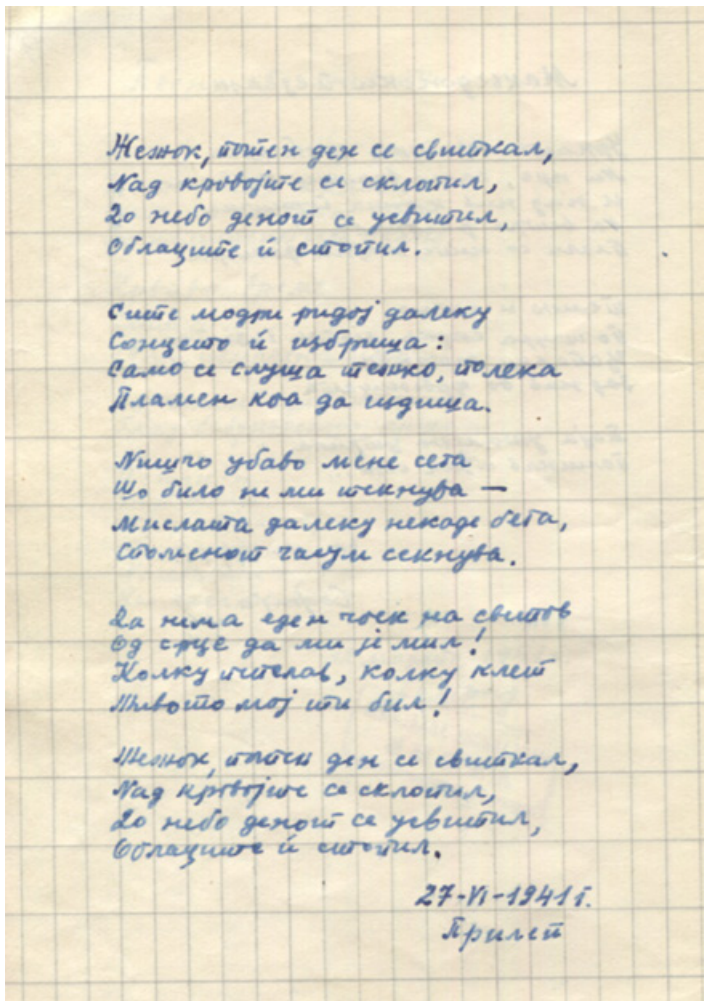 Жежок, потен ден се свиткал,
Над кровојте се склопил,
До небо денот се усвитил,
Облаците й стопил.
Сите модри ридој далеку
Сонцето й избриша:
Само се слуша тешко, полека
Пламен коа да издиша.
Ништо убаво мене сега
Що било не ми текнува —
Мислата далеку некаде бега,
Споменот часум секнува.
Да нема еден чоек на светов
Од срце да ми је мил!
Колку пепелав, колку клет
Живото мој ти бил!
Жежок, потен ден се свиткал,
Над кровојте се склопил,
До небо денот се усвитил,
Облаците й стопил.
27-VI-1941 г.
Прилеп